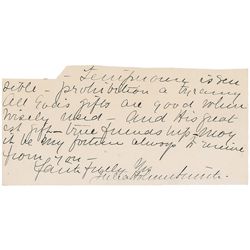 - Temperance is sen
sible - prohibition a tyranny
All God's gifts are good when
wisely used - And His great
est gift - true friendship - may
it be my fortune always to
from you -
Faithfully